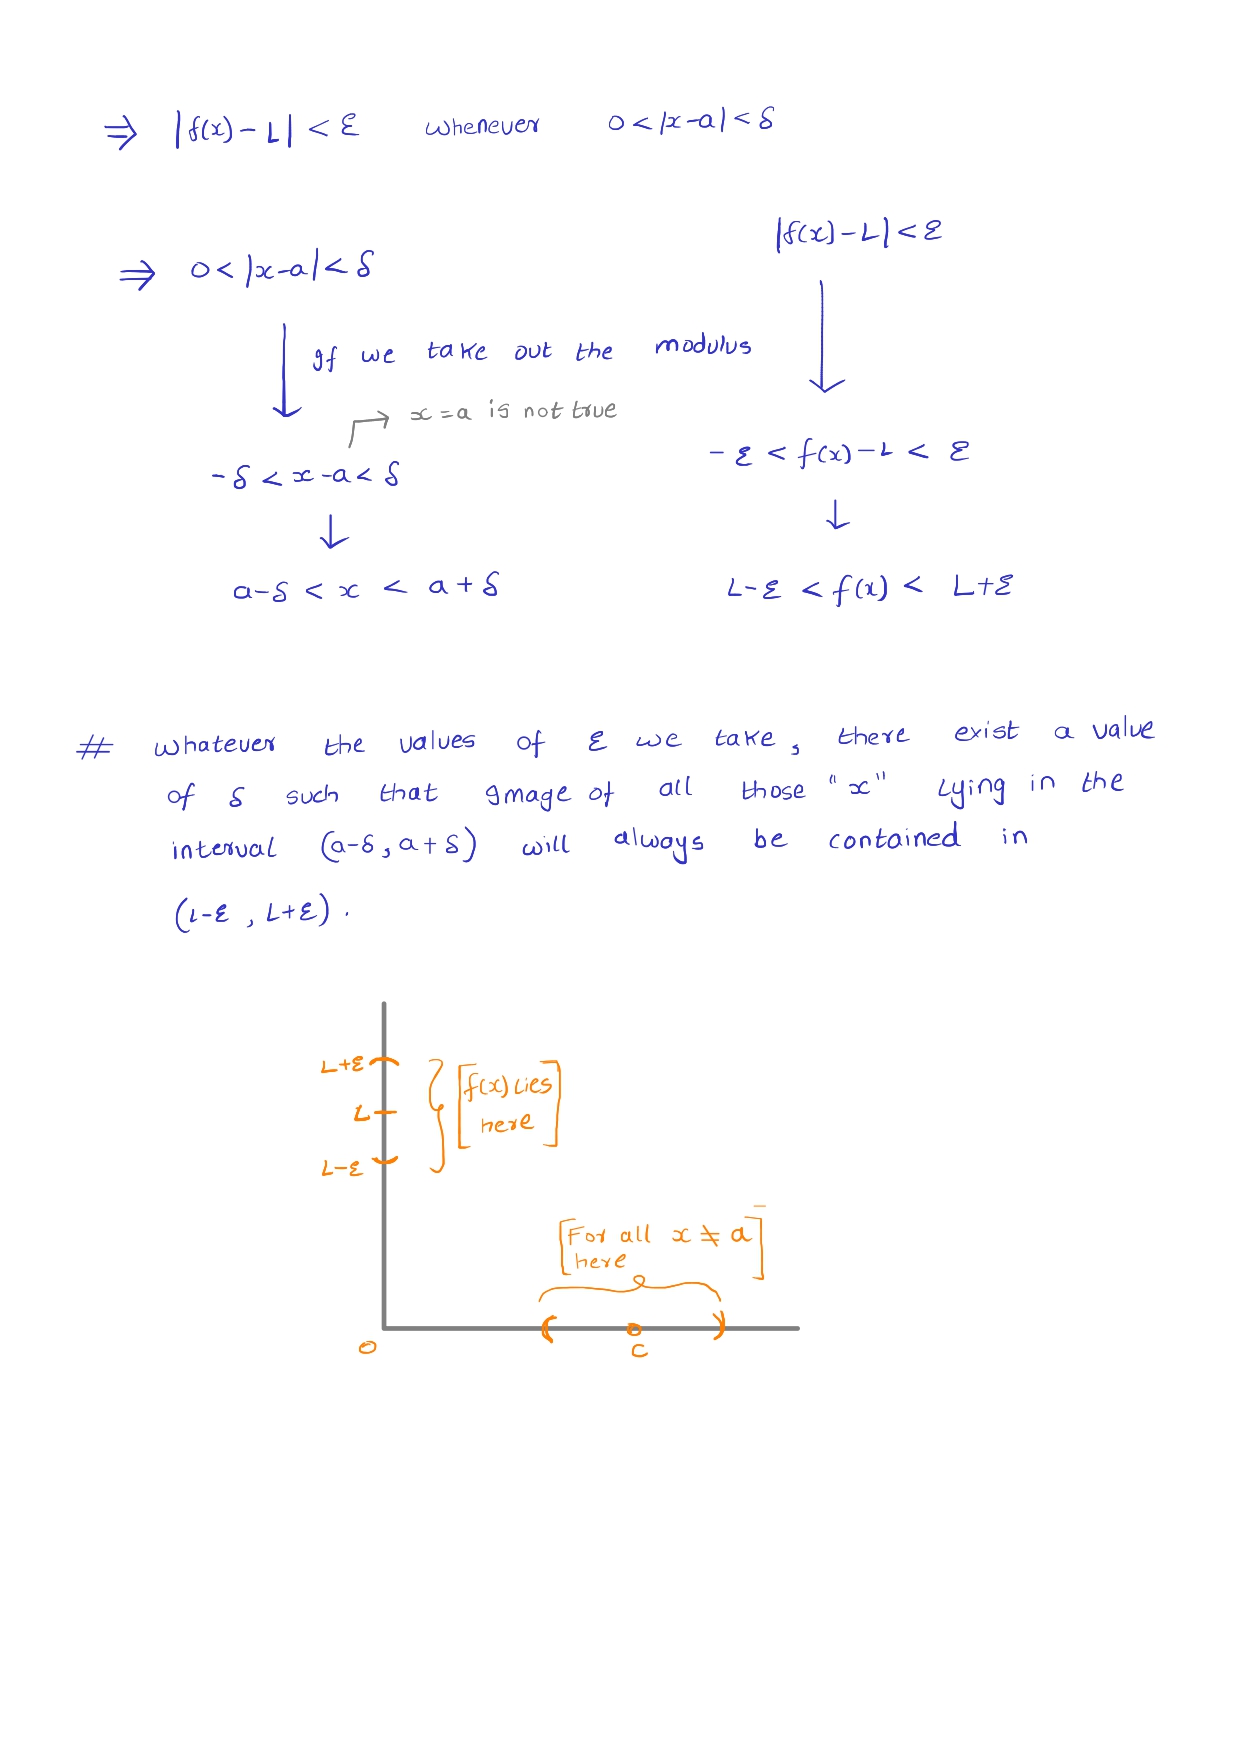 ⇒ |f(x) - L| < ε whenever 0 < |x-a| < δ
|f(x) - L| < ε
⇒ 0 < |x-a| < δ
If we take out the modulus
x = a is not true
-δ < x-a < δ
-ε < f(x) - L < ε
a-δ < x < a+δ
L-ε < f(x) < L+ε
# whatever the values of ε we take, there exist a value
of δ such that Image of all those "x" lying in the
interval (a-δ, a+δ) will always be contained in
(L-ε, L+ε).
L+ε
[f(x) lies
here]
L
L-ε
[For all x ≠ a]
here
O
C